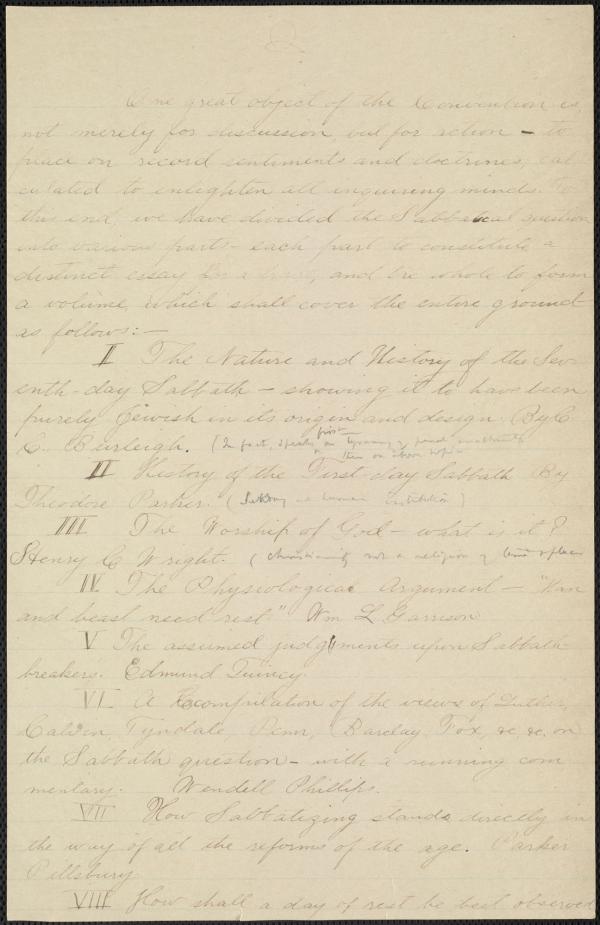 One great object of the Convention is,
not merely for discussion, but for action – to
place on record sentiments and doctrines, cal
culated to enlighten all inquiring minds. To
this end, we have divided the Sabbatical question
into various parts – each part to constitute a
distinct essay for a tract, and the whole to form
a volume, which shall cover the entire ground
as follows: –
I The Nature and History of the Sev
enth-day Sabbath – showing it to have been
purely Jewish in its origin and design. By C.
C. Burleigh. (In fact, speaks first on tyranny of penal enactments
then on above topic –
II History of the First-day Sabbath By
Theodore Parker. (Sunday a human institution)
III The Worship of God – what is it?
Henry C Wright. (Christianity not a religion of time & place
IV The Physiological Argument – "Man
and beast need rest" Wm L Garrison
V The assumed judgments upon Sabbath
breakers. Edmund Quincy.
VI A compilation of the views of Luther,
Calvin, Tyndale, Penn, Barclay, Fox, &c, &c, on
the Sabbath question – with a running com
mentary. Wendell Phillips.
VII How Sabbatizing stands directly in
the way of all the reforms of the age. Parker
Pillsbury
VIII How shall a day of rest be best observed